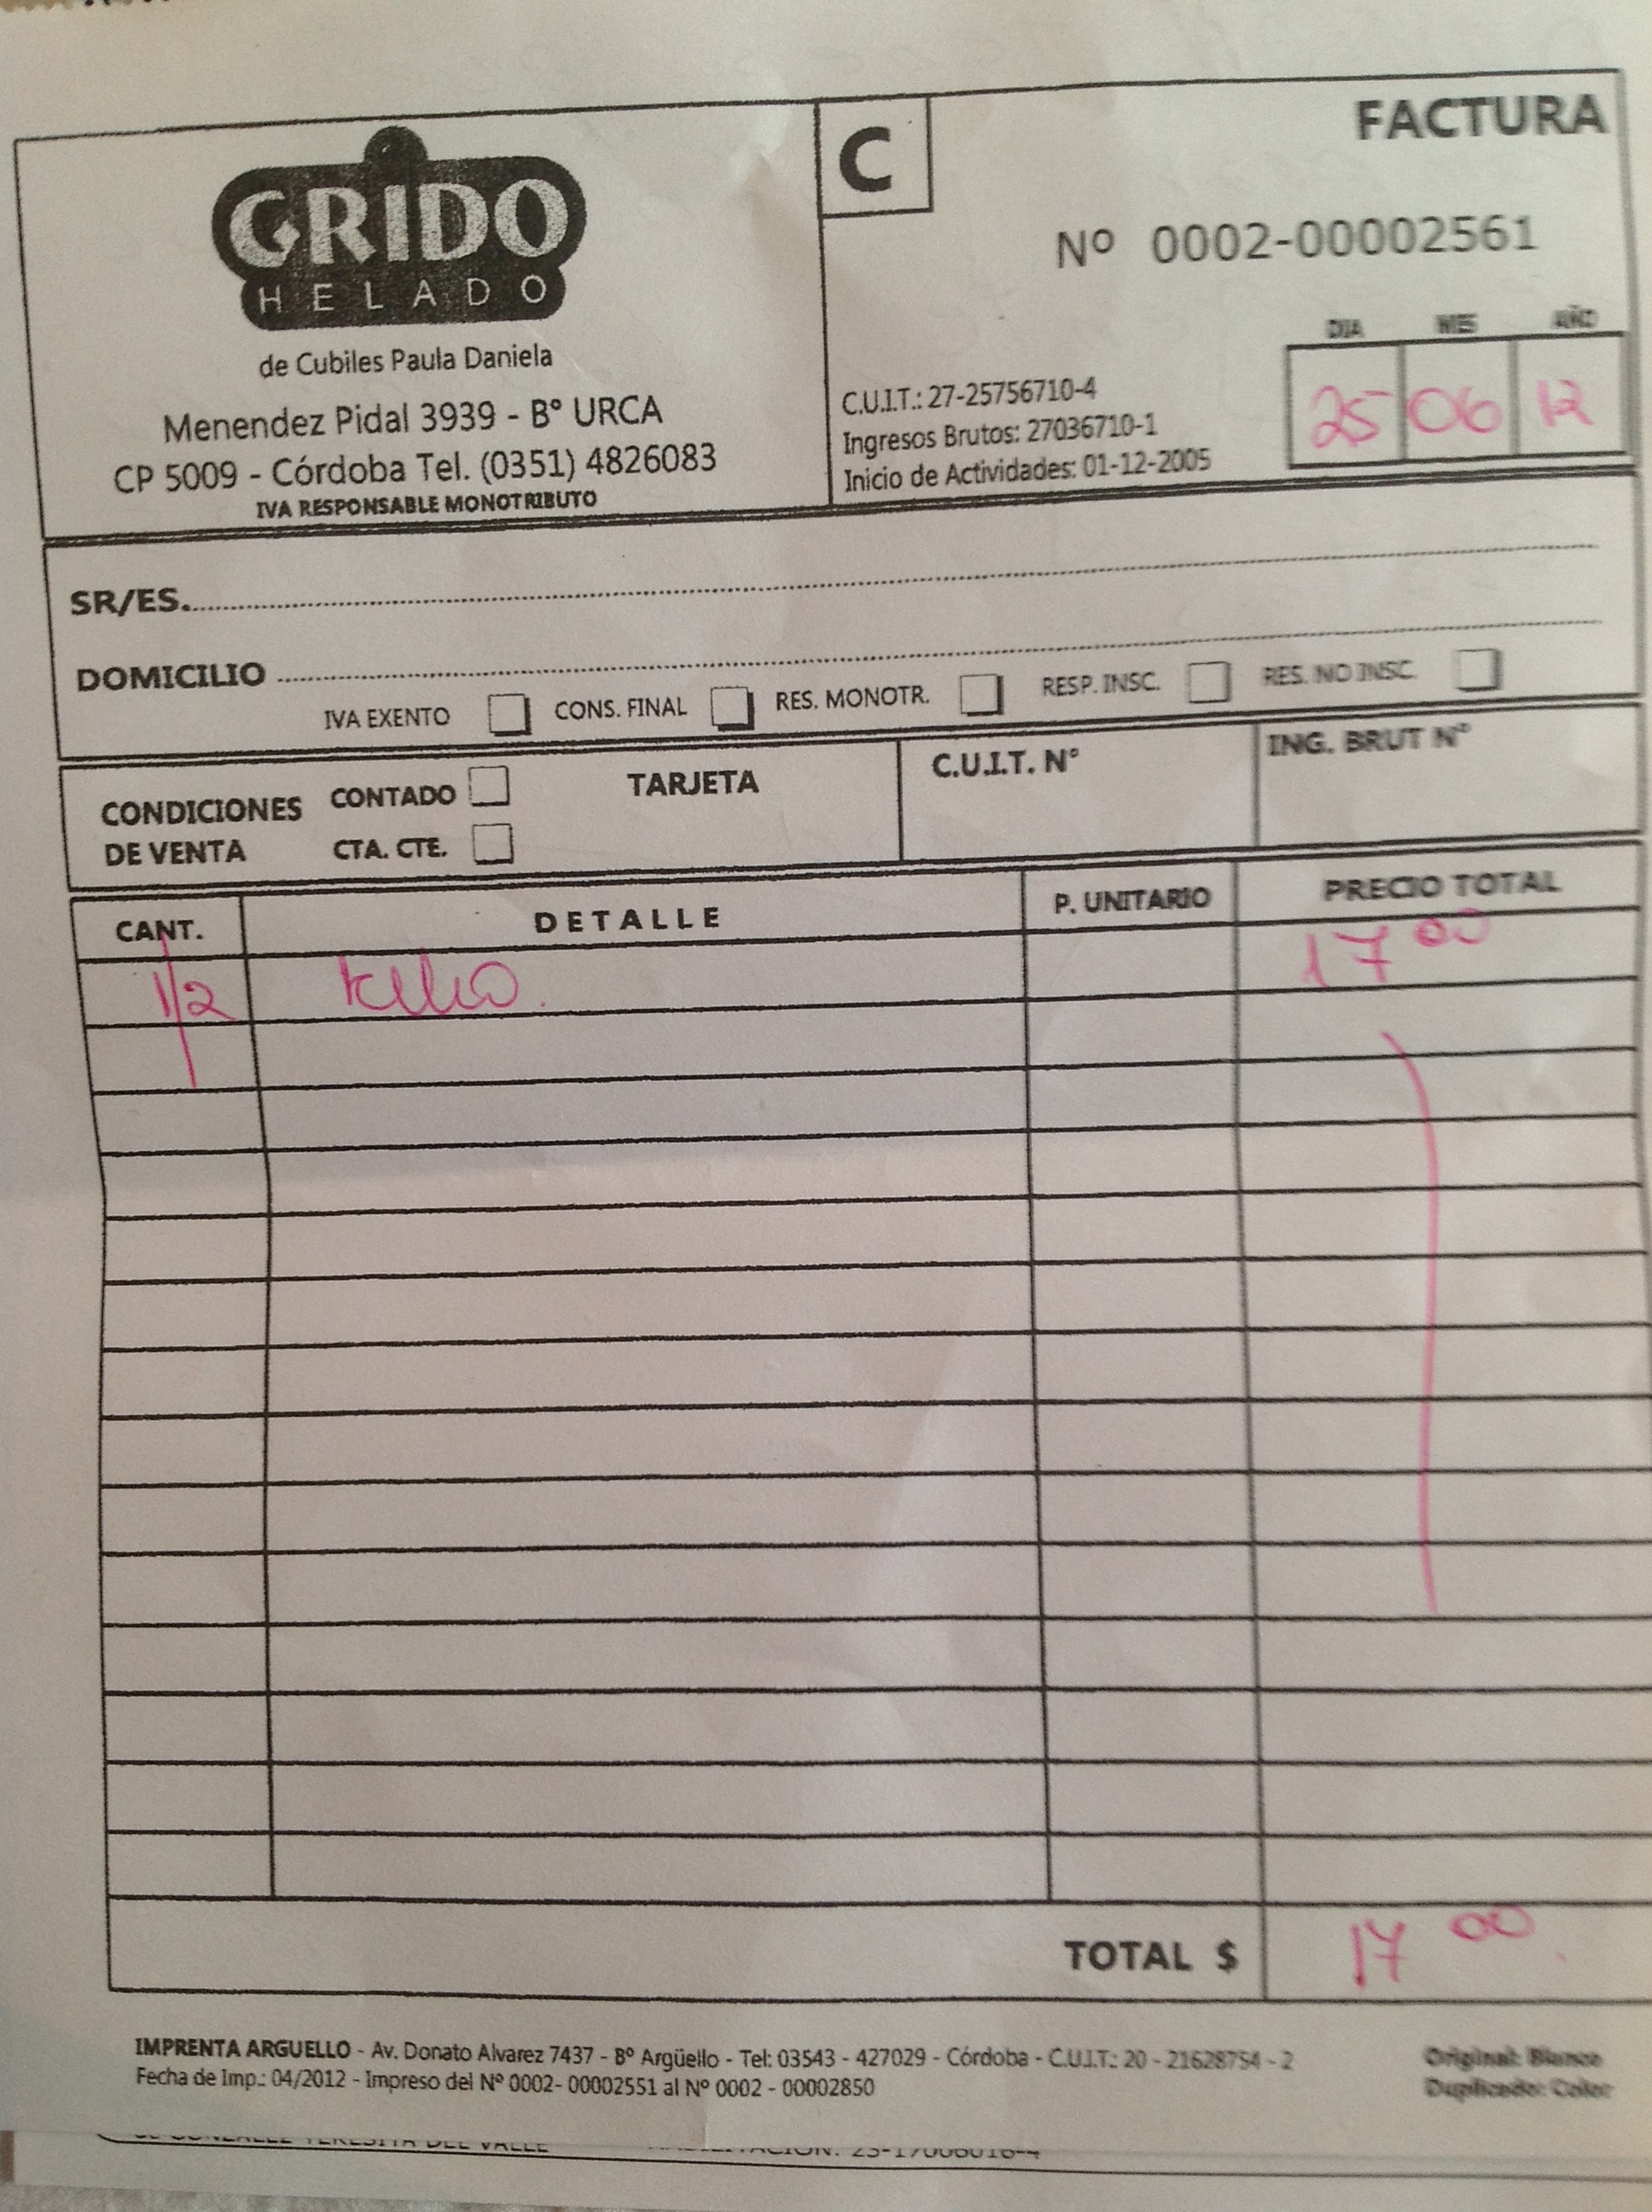 GRIDO
HELADO
de Cubiles Paula Daniela
Menendez Pidal 3939 - Bº URCA
CP 5009 - Córdoba Tel. (0351) 4826083
IVA RESPONSABLE MONOTRIBUTO
C
FACTURA
Nº 0002-00002561
DIA MES AÑO
25 06 12
C.U.I.T.: 27-25756710-4
Ingresos Brutos: 27036710-1
Inicio de Actividades: 01-12-2005
SR/ES.
DOMICILIO
IVA EXENTO CONS. FINAL RES. MONOTR. RESP. INSC. RES. NO INSC.
CONDICIONES DE VENTA
CONTADO
CTA. CTE.
TARJETA
C.U.I.T. N°
ING. BRUT N°
CANT. DETALLE P. UNITARIO PRECIO TOTAL
1/2 kilo. 17 00
TOTAL $ 17 00
IMPRENTA ARGUELLO - Av. Donato Alvarez 7437 - Bº Argüello - Tel: 03543 - 427029 - Córdoba - C.U.I.T.: 20 - 21628754 - 2
Fecha de Imp.: 04/2012 - Impreso del Nº 0002- 00002551 al Nº 0002 - 00002850
Original: Blanco
Duplicado: Color